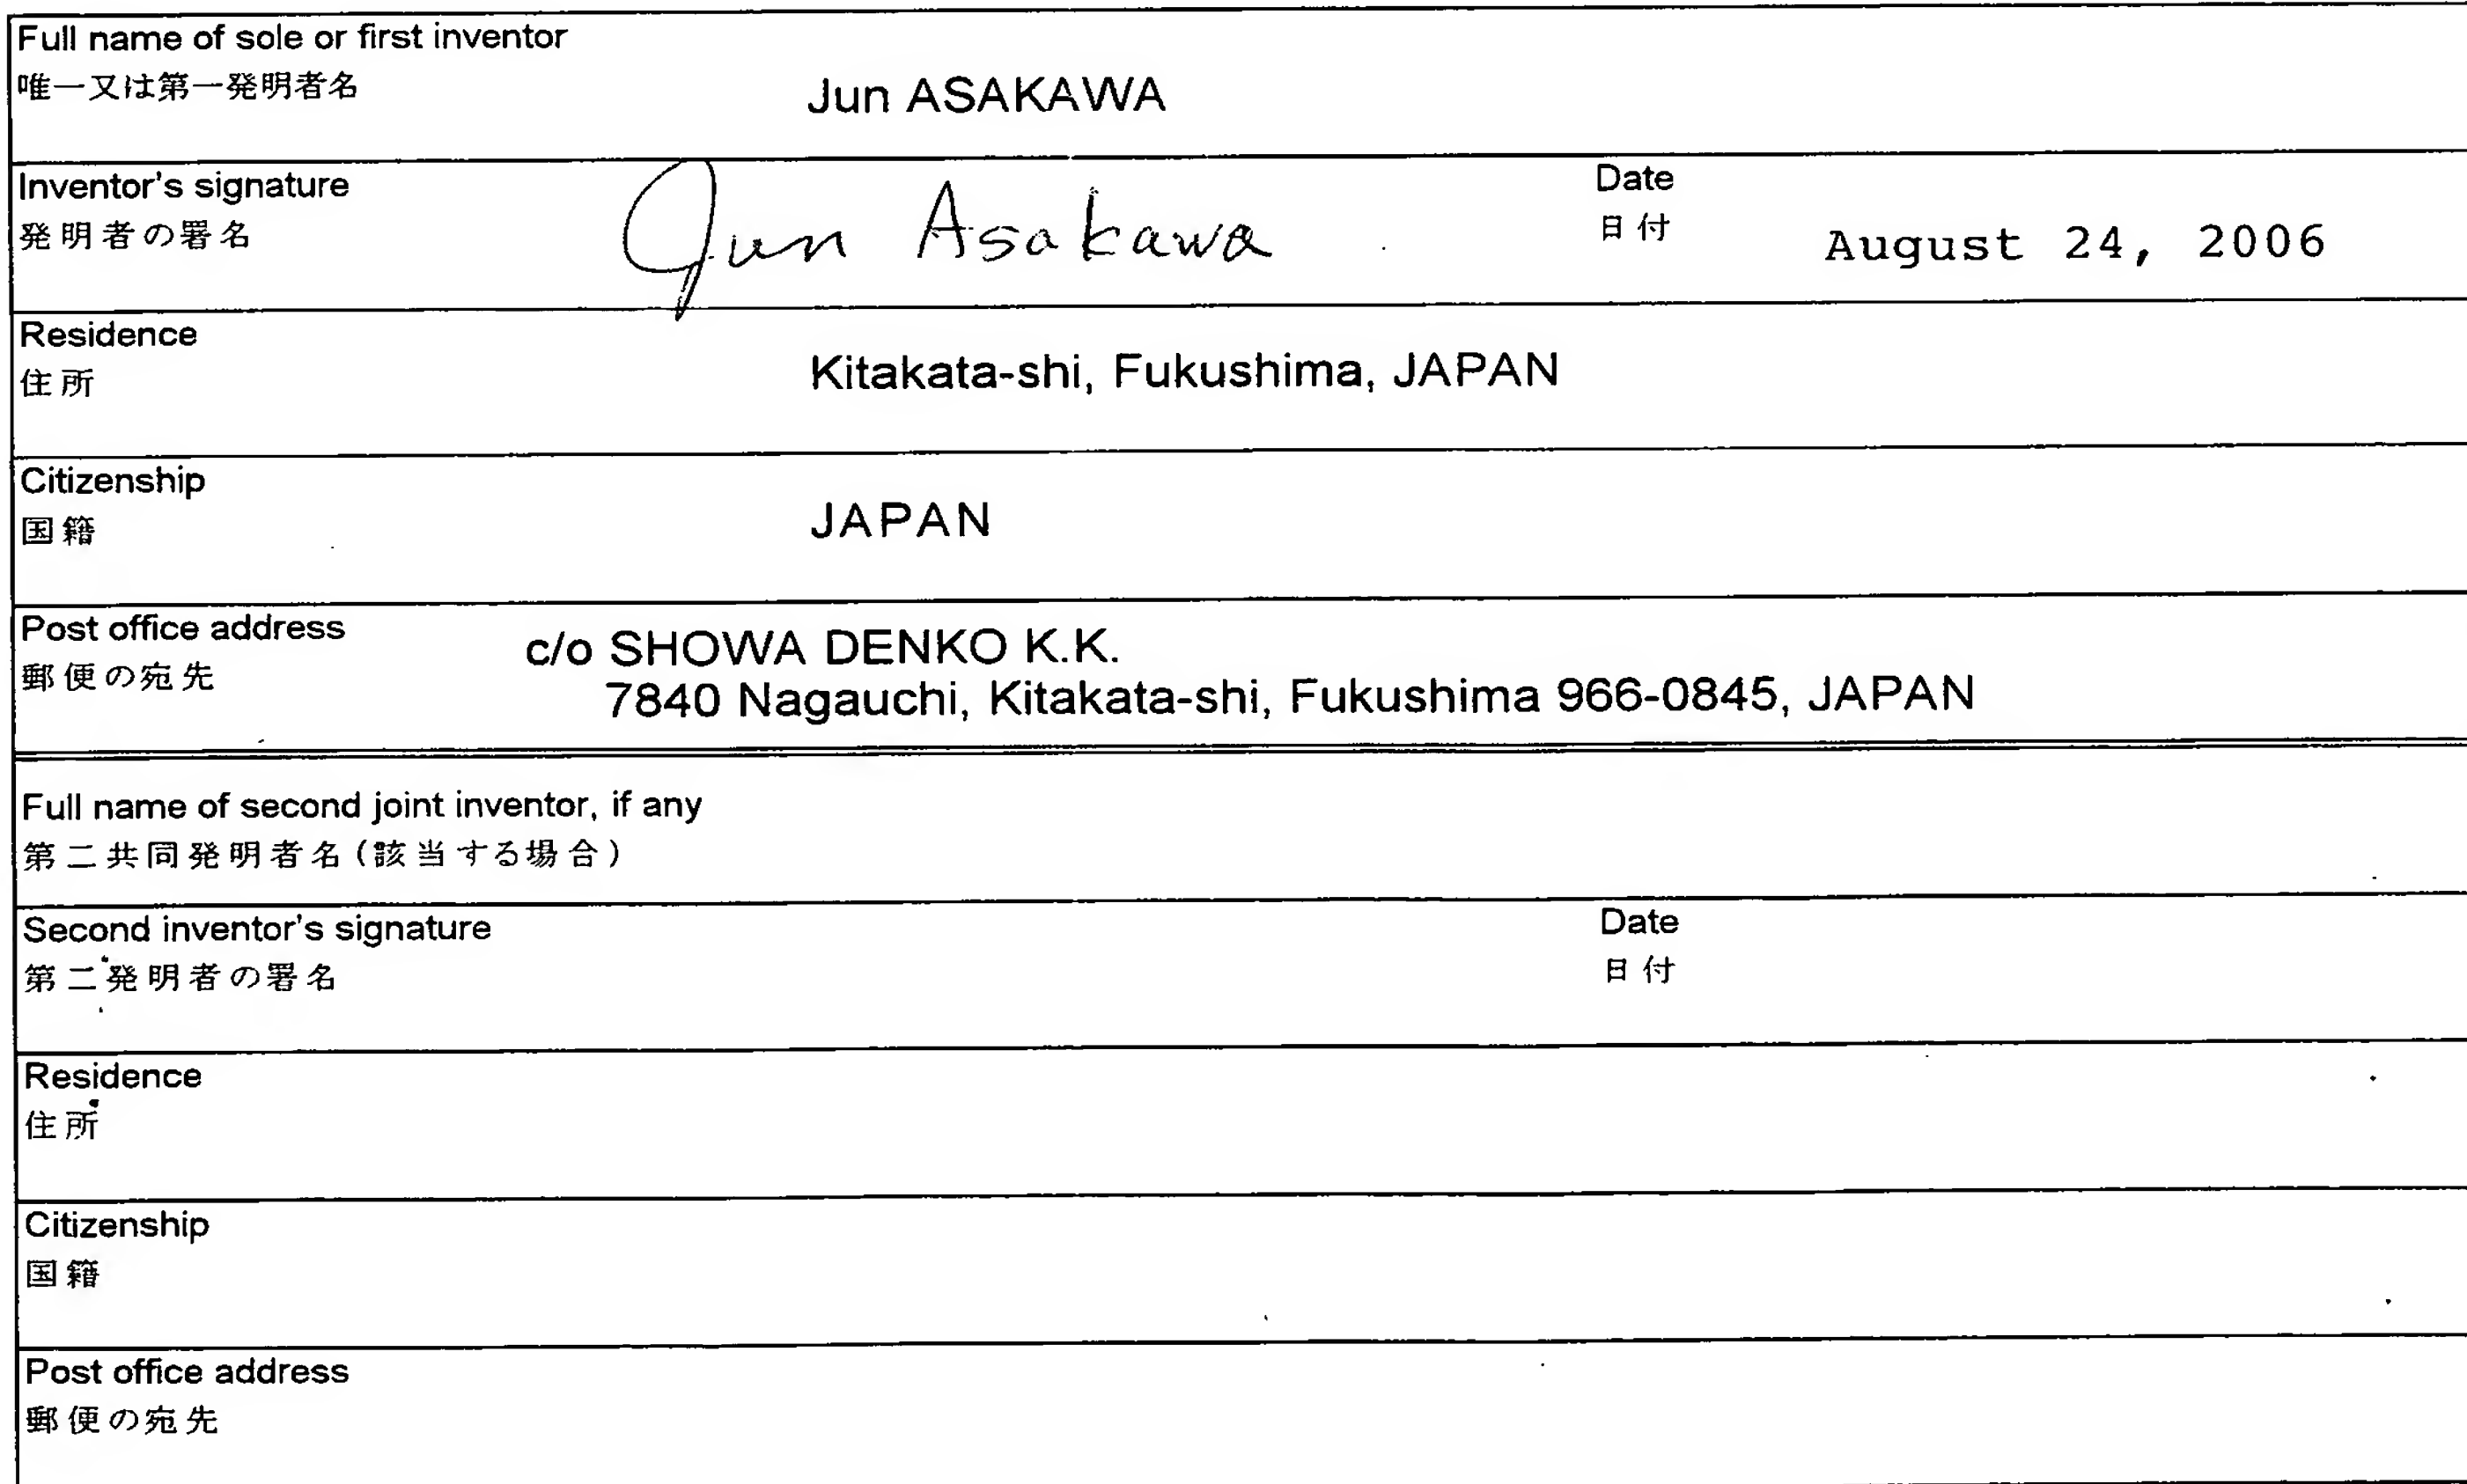 Full name of sole or first inventor
唯一又は第一発明者名
Jun ASAKAWA
Inventor's signature
発明者の署名
Jun Asakawa
Date
日付
August 24, 2006
Residence
住所
Kitakata-shi, Fukushima, JAPAN
Citizenship
国籍
JAPAN
Post office address
郵便の宛先
c/o SHOWA DENKO K.K.
7840 Nagauchi, Kitakata-shi, Fukushima 966-0845, JAPAN
Full name of second joint inventor, if any
第二共同発明者名(該当する場合)
Second inventor's signature
第二発明者の署名
Date
日付
Residence
住所
Citizenship
国籍
Post office address
郵便の宛先